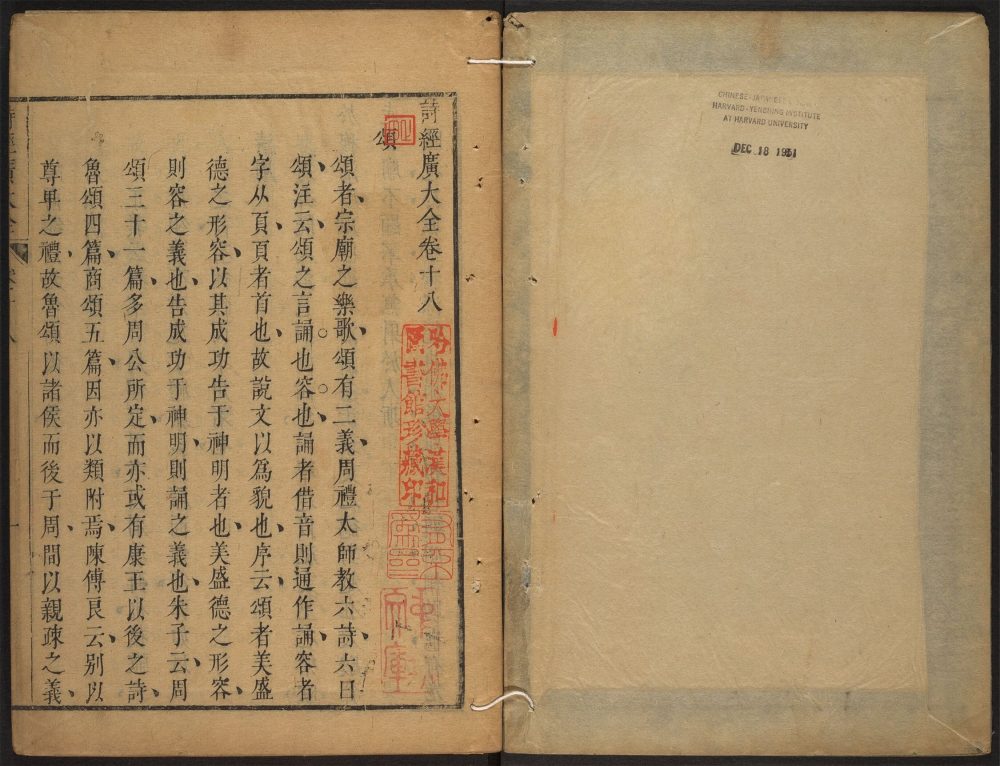 詩經廣大全卷十八
頌
頌者宗廟之樂歌頌有二義周禮太師教六詩六曰
頌注云頌之言誦也容也誦者借音則通作誦容者
字从頁頁者首也故說文以為貌也序云頌者美盛
德之形容以其成功告于神明者也美盛德之形容
則容之義也告成功于神明則誦之義也朱子云周
頌三十一篇多周公所定而亦或有康王以後之詩
魯頌四篇商頌五篇因亦以類附焉陳傅良云别以
尊卑之禮故魯頌以諸侯而後于周間以親疎之義
哈佛大學漢和
圖書館珍藏印
CHINESE-JAPANESE
HARVARD-YENCHING INSTITUTE
AT HARVARD UNIVERSITY
DEC 18 1951